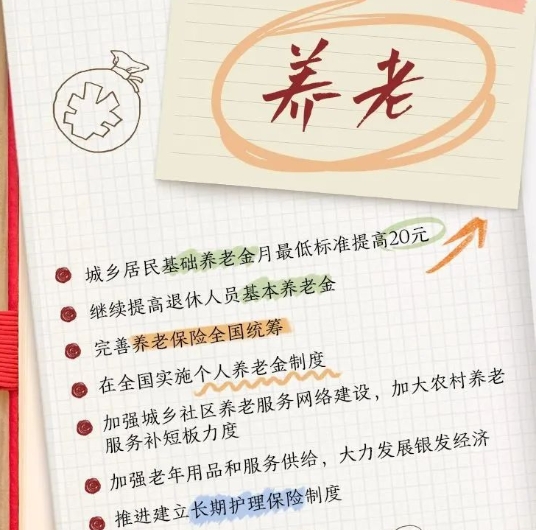 养老
城乡居民基础养老金月最低标准提高20元
继续提高退休人员基本养老金
完善养老保险全国统筹
在全国实施个人养老金制度
加强城乡社区养老服务网络建设，加大农村养老
服务补短板力度
加强老年用品和服务供给，大力发展银发经济
推进建立长期护理保险制度